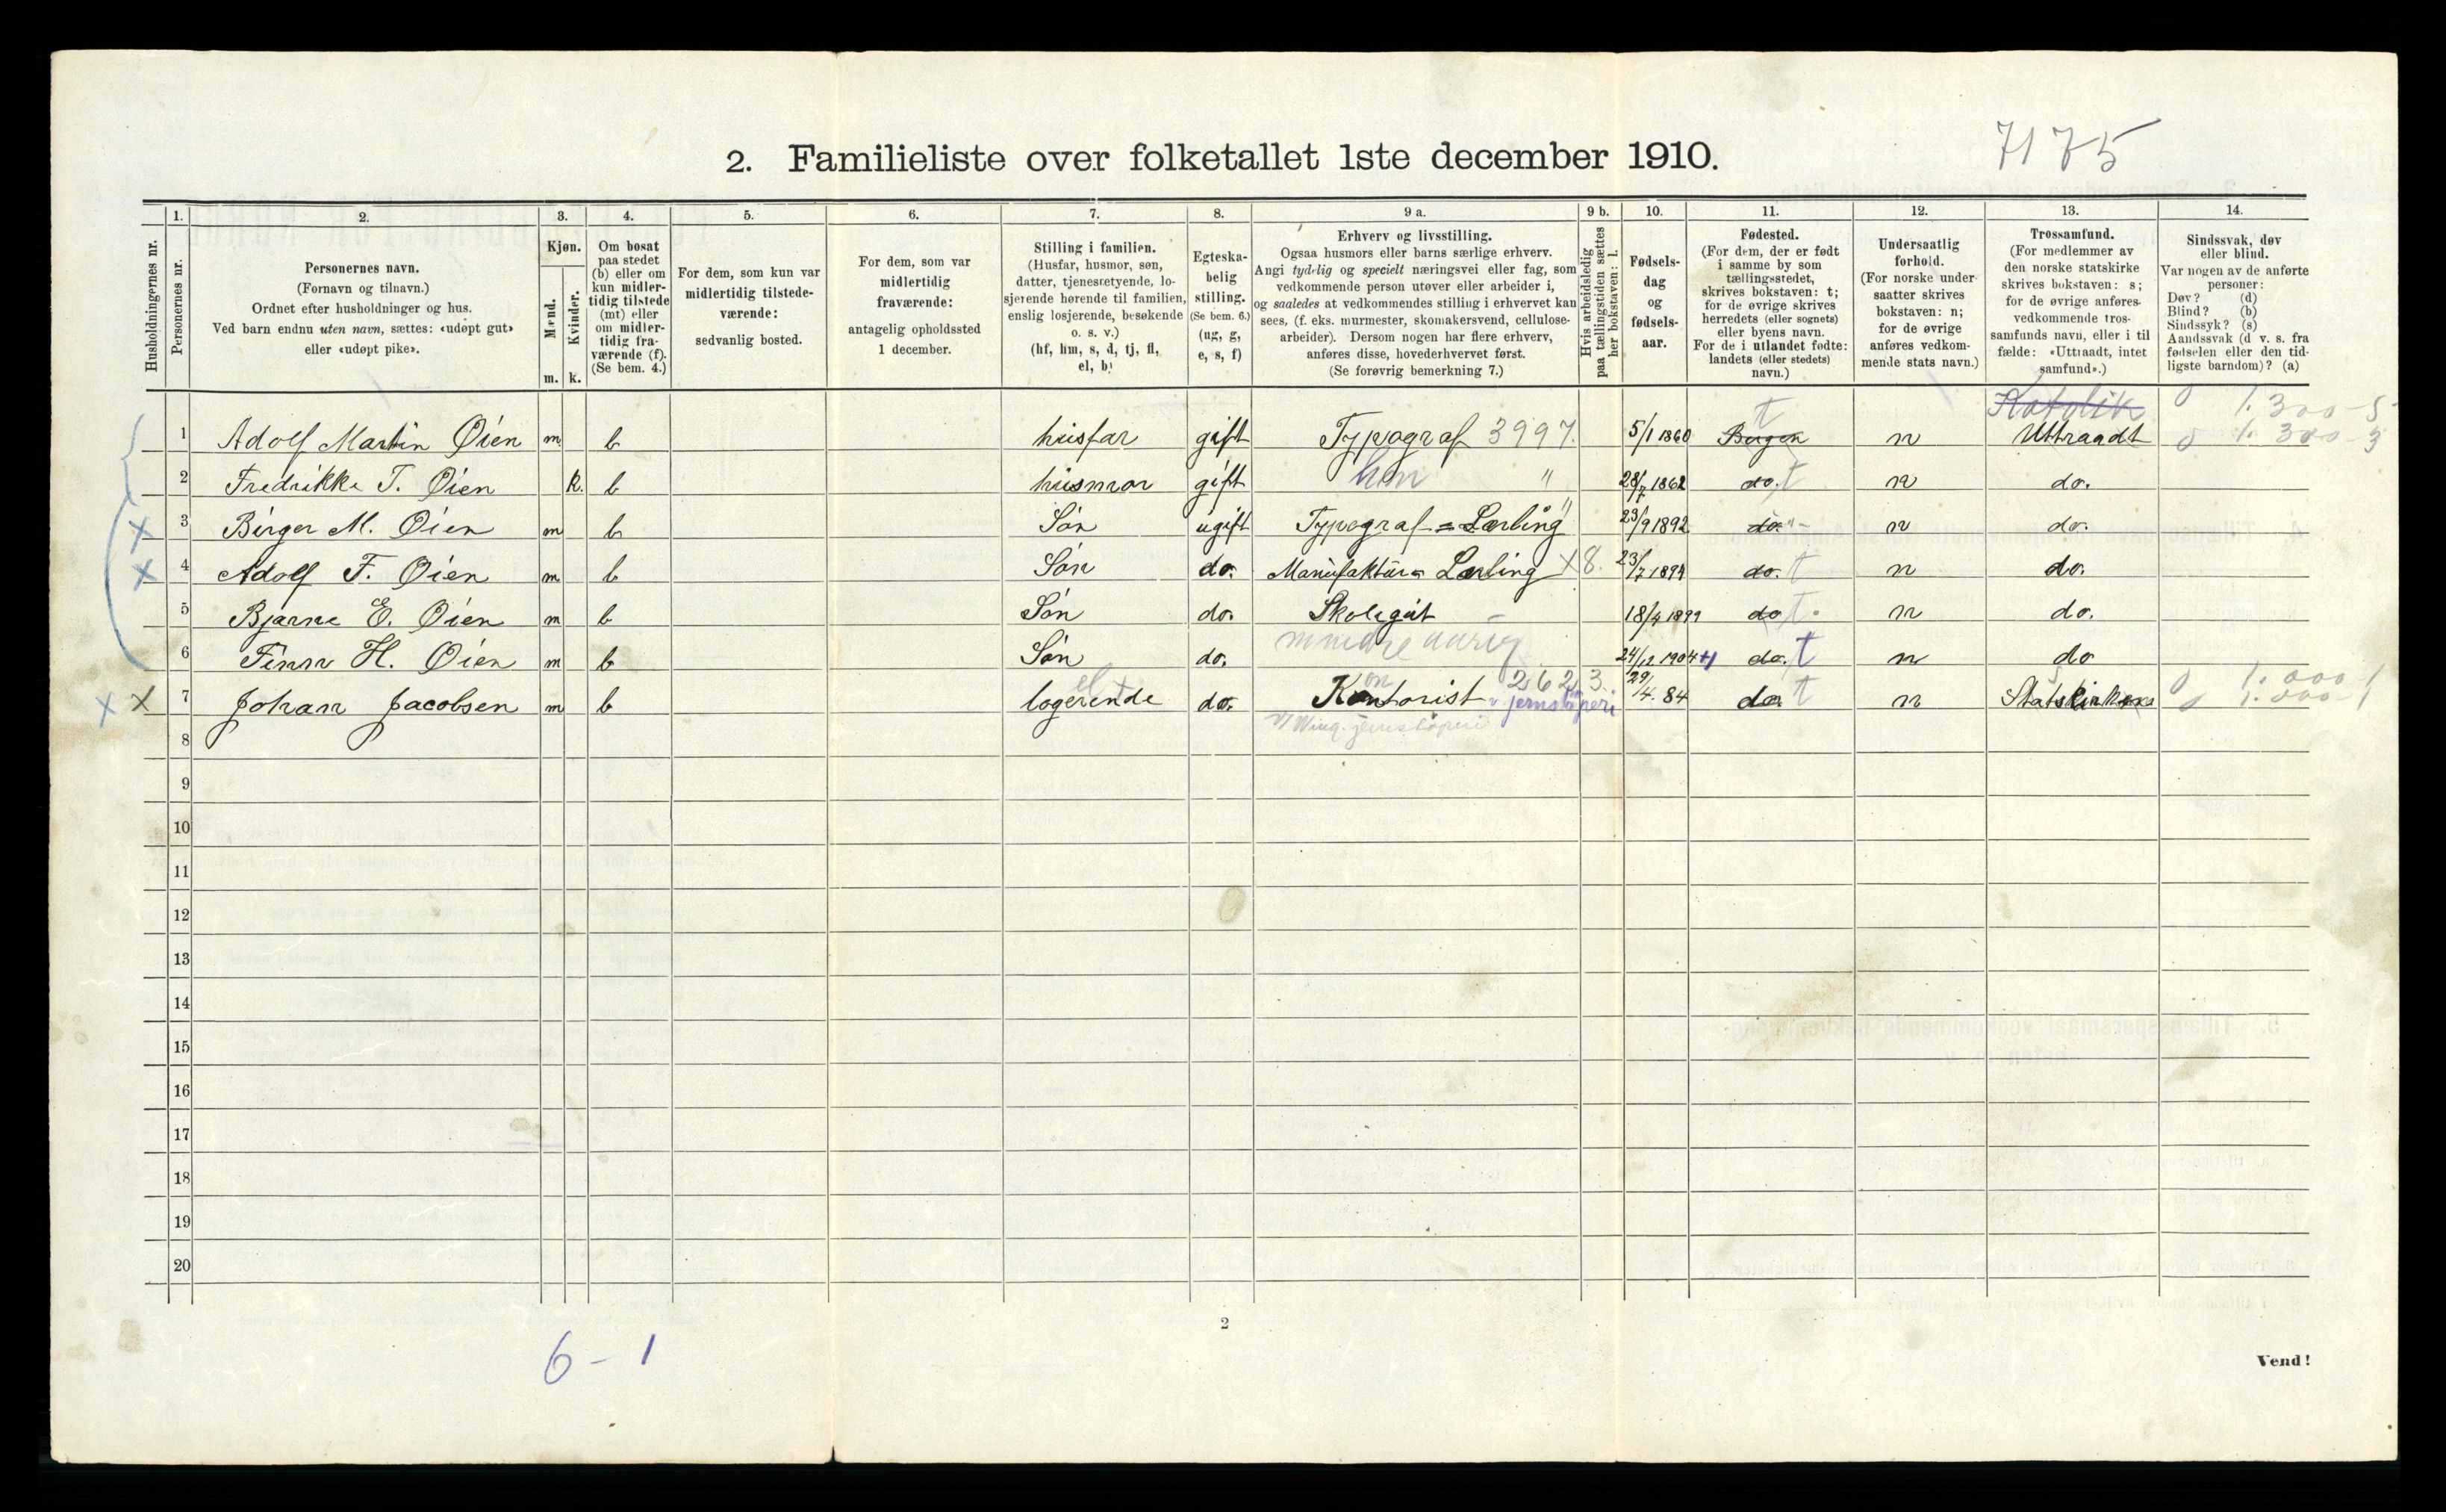 7175
2. Familieliste over folketallet 1ste december 1910.
1. 2. 3. 4. 5. 6. 7. 8. 9 a. 9 b. 10. 11. 12. 13. 14.
Husholdningernes nr.
Personernes nr.
Personernes navn.
(Fornavn og tilnavn.)
Ordnet efter husholdninger og hus.
Ved barn endnu uten navn, sættes: «udøpt gut»
eller «udøpt pike».
Kjøn.
Mænd.
m.
Kvinder.
k.
Om bosat
paa stedet
(b) eller om
kun midler-
tidig tilstede
(mt) eller
om midler-
tidig fra-
værende (f).
(Se bem. 4.)
For dem, som kun var
midlertidig tilstede-
værende:
sedvanlig bosted.
For dem, som var
midlertidig
fraværende:
antagelig opholdssted
1 december.
Stilling i familien.
(Husfar, husmor, søn,
datter, tjenestetyende, lo-
sjerende hørende til familien,
enslig losjerende, besøkende
o. s. v.)
(hf, hm, s, d, tj, fl,
el, b)
Egteska-
belig
stilling.
(Se bem. 6.)
(ug, g,
e, s, f)
Erhverv og livsstilling.
Ogsaa husmors eller barns særlige erhverv.
Angi tydelig og specielt næringsvei eller fag, som
vedkommende person utøver eller arbeider i,
og saaledes at vedkommendes stilling i erhvervet kan
sees, (f. eks. murmester, skomakersvend, cellulose-
arbeider). Dersom nogen har flere erhverv,
anføres disse, hovederhvervet først.
(Se forøvrig bemerkning 7.)
Hvis arbeidsledig
paa tællingstiden sættes
her bokstaven: l.
Fødsels-
dag
og
fødsels-
aar.
Fødested.
(For dem, der er født
i samme by som
tællingsstedet,
skrives bokstaven: t;
for de øvrige skrives
herredets (eller sognets)
eller byens navn.
For de i utlandet fødte:
landets (eller stedets)
navn.)
Undersaatlig
forhold.
(For norske under-
saatter skrives
bokstaven: n;
for de øvrige
anføres vedkom-
mende stats navn.)
Trossamfund.
(For medlemmer av
den norske statskirke
skrives bokstaven: s;
for de øvrige anføres
vedkommende tros-
samfunds navn, eller i til
fælde: «Uttraadt, intet
samfund».)
Sindssvak, døv
eller blind.
Var nogen av de anførte
personer:
Døv? (d)
Blind? (b)
Sindssyk? (s)
Aandssvak (d v. s. fra
fødselen eller den tid-
ligste barndom)? (a)
t Katolik 0 1.300-5
1 Adolf Martin Øien m b husfar gift Typograf 3997. 5/1 1860 Bergen n Uttraadt 0 1.300-3
2 Fredrikke T. Øien k. b husmor gift hm " 28/7 1862 do. t n do.
3 Birger M. Øien m b Søn ugift Typograf=Lærling " 23/9 1892 do. -"- n do.
4 Adolf F. Øien m b Søn do. Manufaktur= Lærling X8. 23/7 1894 do. t n do.
5 Bjarne E. Øien m b Søn do. Skolegut - 18/4 1899 do t. n do.
6 Finn H. Øien m b Søn do. mindre aarig 24/12 1904 +1 do. t n do
el 2623. 0 1.000-1
7 Johan Jacobsen m b logerende do. Kontorist v jernstøperi 29/4. 84 do. t n Statskirken 0 1.000-1
jernstøperi
8
9
10
11
12
13
14
15
16
17
18
19
20
2
6-1
Vend!